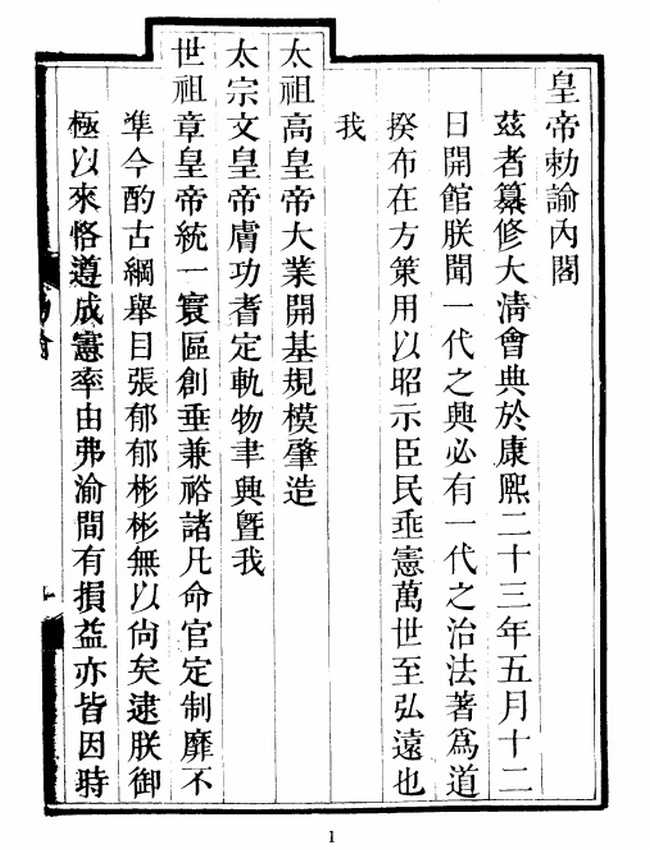 皇帝勅諭內閣
茲者纂修大淸會典於康熙二十三年五月十二
日開館朕聞一代之興必有一代之治法著爲道
揆布在方策用以昭示臣民垂憲萬世至弘遠也
我
太祖高皇帝大業開基規模肇造
太宗文皇帝膚功耆定軌物聿興曁我
世祖章皇帝統一寰區創垂兼裕諸凡命官定制靡不
準今酌古綱舉目張郁郁彬彬無以尙矣逮朕御
極以來恪遵成憲率由弗渝間有損益亦皆因時
1